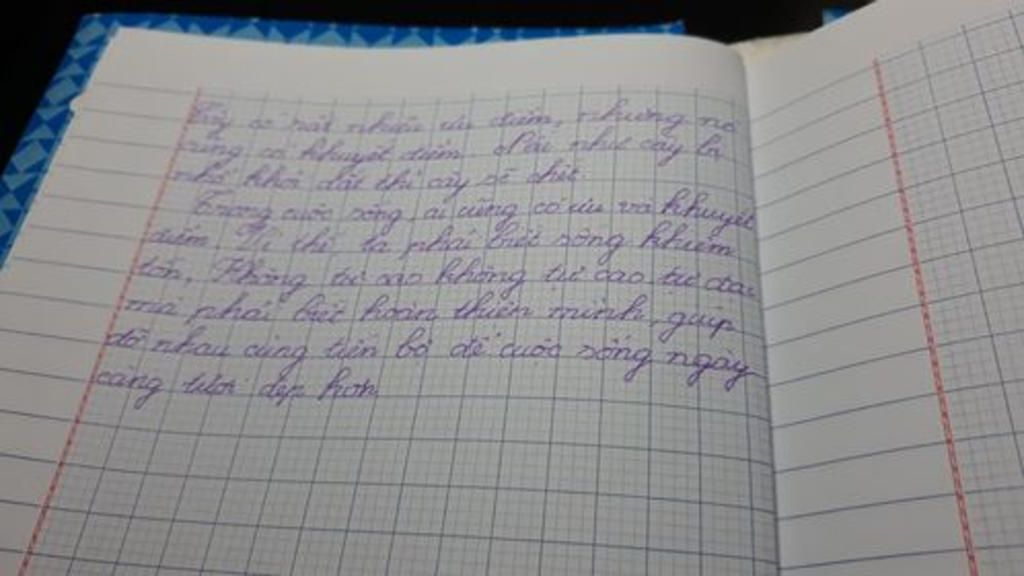 Cây có rất nhiều ưu điểm, nhưng nó
cũng có khuyết điểm. Nếu như cây bị
nhổ khỏi đất thì cây sẽ chết.
Trong cuộc sống, ai cũng có ưu và khuyết
điểm. Vì thế, ta phải biết sống khiêm
tốn, không tự cao không tự cao tự đại
mà phải biết hoàn thiện mình, giúp
đỡ nhau cùng tiến bộ để cuộc sống ngày
càng tươi đẹp hơn.